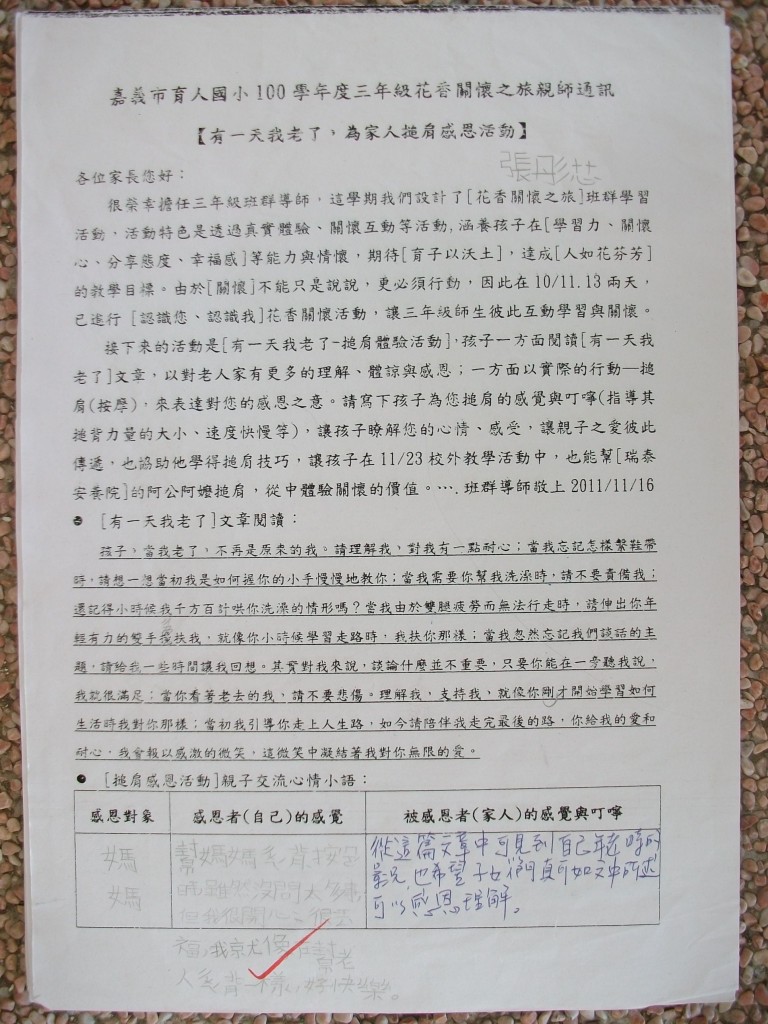 嘉義市育人國小100學年度三年級花香關懷之旅親師通訊
【有一天我老了，為家人搥肩感恩活動】
張彤芯
各位家長您好：
很榮幸擔任三年級班群導師，這學期我們設計了[花香關懷之旅]班群學習
活動，活動特色是透過真實體驗、關懷互動等活動,涵養孩子在[學習力、關懷
心、分享態度、幸福感]等能力與情懷，期待[育子以沃土]，達成[人如花芬芳]
的教學目標。由於[關懷]不能只是說說，更必須行動，因此在10/11.13兩天，
已進行 [認識您、認識我]花香關懷活動，讓三年級師生彼此互動學習與關懷。
接下來的活動是[有一天我老了-搥肩體驗活動],孩子一方面閱讀[有一天我
老了]文章，以對老人家有更多的理解、體諒與感恩；一方面以實際的行動—搥
肩(按摩)，來表達對您的感恩之意。請寫下孩子為您搥肩的感覺與叮嚀(指導其
搥背力量的大小、速度快慢等)，讓孩子瞭解您的心情、感受，讓親子之愛彼此
傳遞，也協助他學得搥肩技巧，讓孩子在11/23校外教學活動中，也能幫[瑞泰
安養院]的阿公阿嬤搥肩，從中體驗關懷的價值。….班群導師敬上2011/11/16
● [有一天我老了]文章閱讀：
孩子，當我老了，不再是原來的我。請理解我，對我有一點耐心；當我忘記怎樣繫鞋帶
時，請想一想當初我是如何握你的小手慢慢地教你；當我需要你幫我洗澡時，請不要責備我；
還記得小時候我千方百計哄你洗澡的情形嗎？當我由於雙腿疲勞而無法行走時，請伸出你年
輕有力的雙手攙扶我，就像你小時候學習走路時，我扶你那樣；當我忽然忘記我們談話的主
題，請給我一些時間讓我回想。其實對我來說，談論什麼並不重要，只要你能在一旁聽我說，
我就很滿足；當你看著老去的我，請不要悲傷。理解我，支持我，就像你剛才開始學習如何
生活時我對你那樣；當初我引導你走上人生路，如今請陪伴我走完最後的路，你給我的愛和
耐心，我會報以感激的微笑，這微笑中凝結著我對你無限的愛。
● [搥肩感恩活動]親子交流心情小語：
感恩對象 感恩者(自己)的感覺 被感恩者(家人)的感覺與叮嚀
媽媽
幫媽媽
從這篇文章中可見到自己年老時的
景況，也希望子女們真可如文中所述
可以感恩理解。
福，我就像在幫老
人搥背一樣，好快樂。